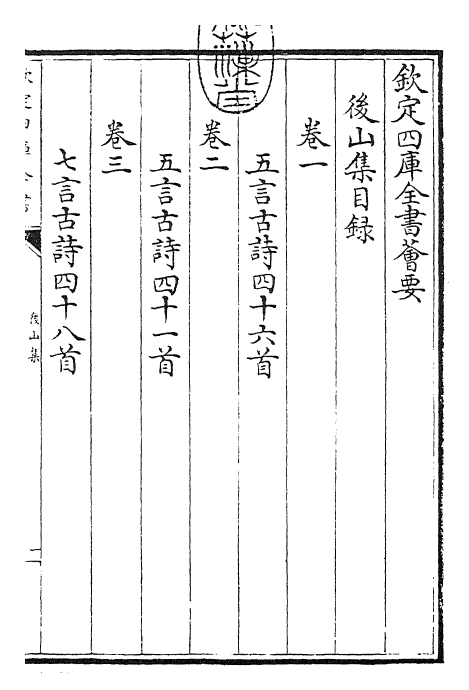 欽定四庫全書薈要
後山集目録
卷一
五言古詩四十六首
卷二
五言古詩四十一首
卷三
七言古詩四十八首
欽定四庫全書
後山集
一